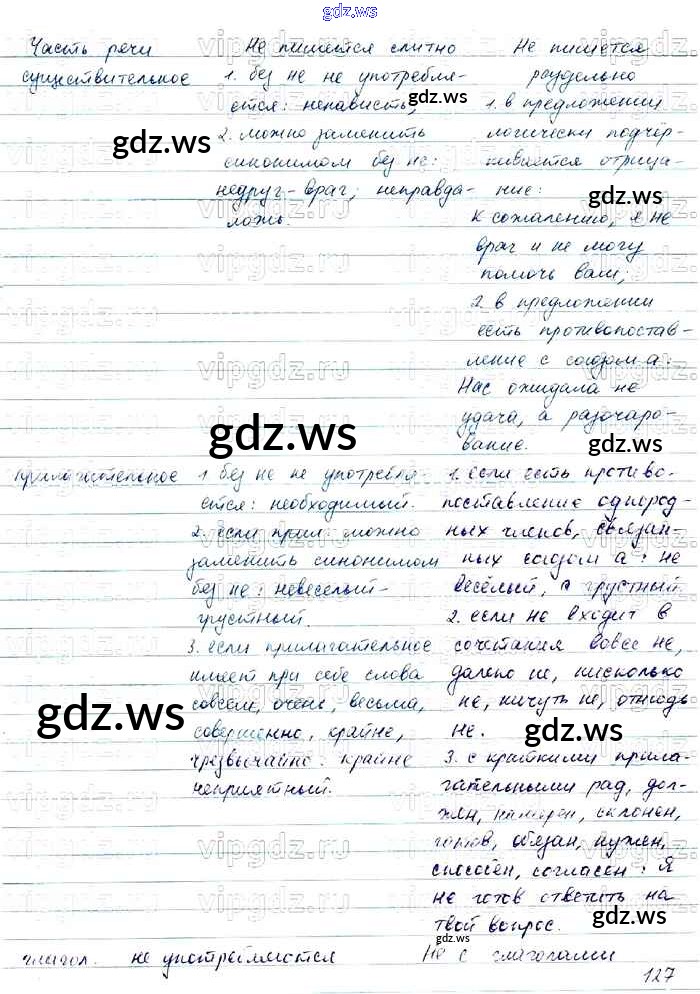 gdz.ws
Часть речи Не пишется слитно Не пишется
существительное 1. без не не употребля- раздельно
ется: ненависть; 1. в предложении
gdz.ws
gdz.ws 2. можно заменить логически подчёр-
синонимом без не: кивается отрица-
недруг - враг; неправда- ние: gdz.ws
ложь. к сожалению, я не
врач и не могу
помочь вам;
2. в предложении
есть противопостав-
ление с союзом а:
Нас ожидала не
gdz.ws удача, а разочаро-
вание. gdz.ws
прилагательное 1 без не не употребля- 1. если есть противо-
ется: необходимый. поставление однород-
2. если прил. можно ных членов, связан-
заменить синонимом ных союзом а: не
без не: невеселый- весёлый, а грустный.
грустный. 2. если не входит в
3. если прилагательное сочетания вовсе не,
имеет при себе слова далеко не, нисколько
совсем, очень, весьма, не, ничуть не, отнюдь
gdz.ws совершенно, крайне, не. gdz.ws
чрезвычайно: крайне 3. с краткими прила-
неприятный. гательными рад, дол-
жен, намерен, склонен,
готов, обязан, нужен,
способен, согласен: Я
не готов ответить на
твой вопрос. gdz.ws
gdz.ws
глагол. не употребляются Не с глаголами
127
gdz.ws